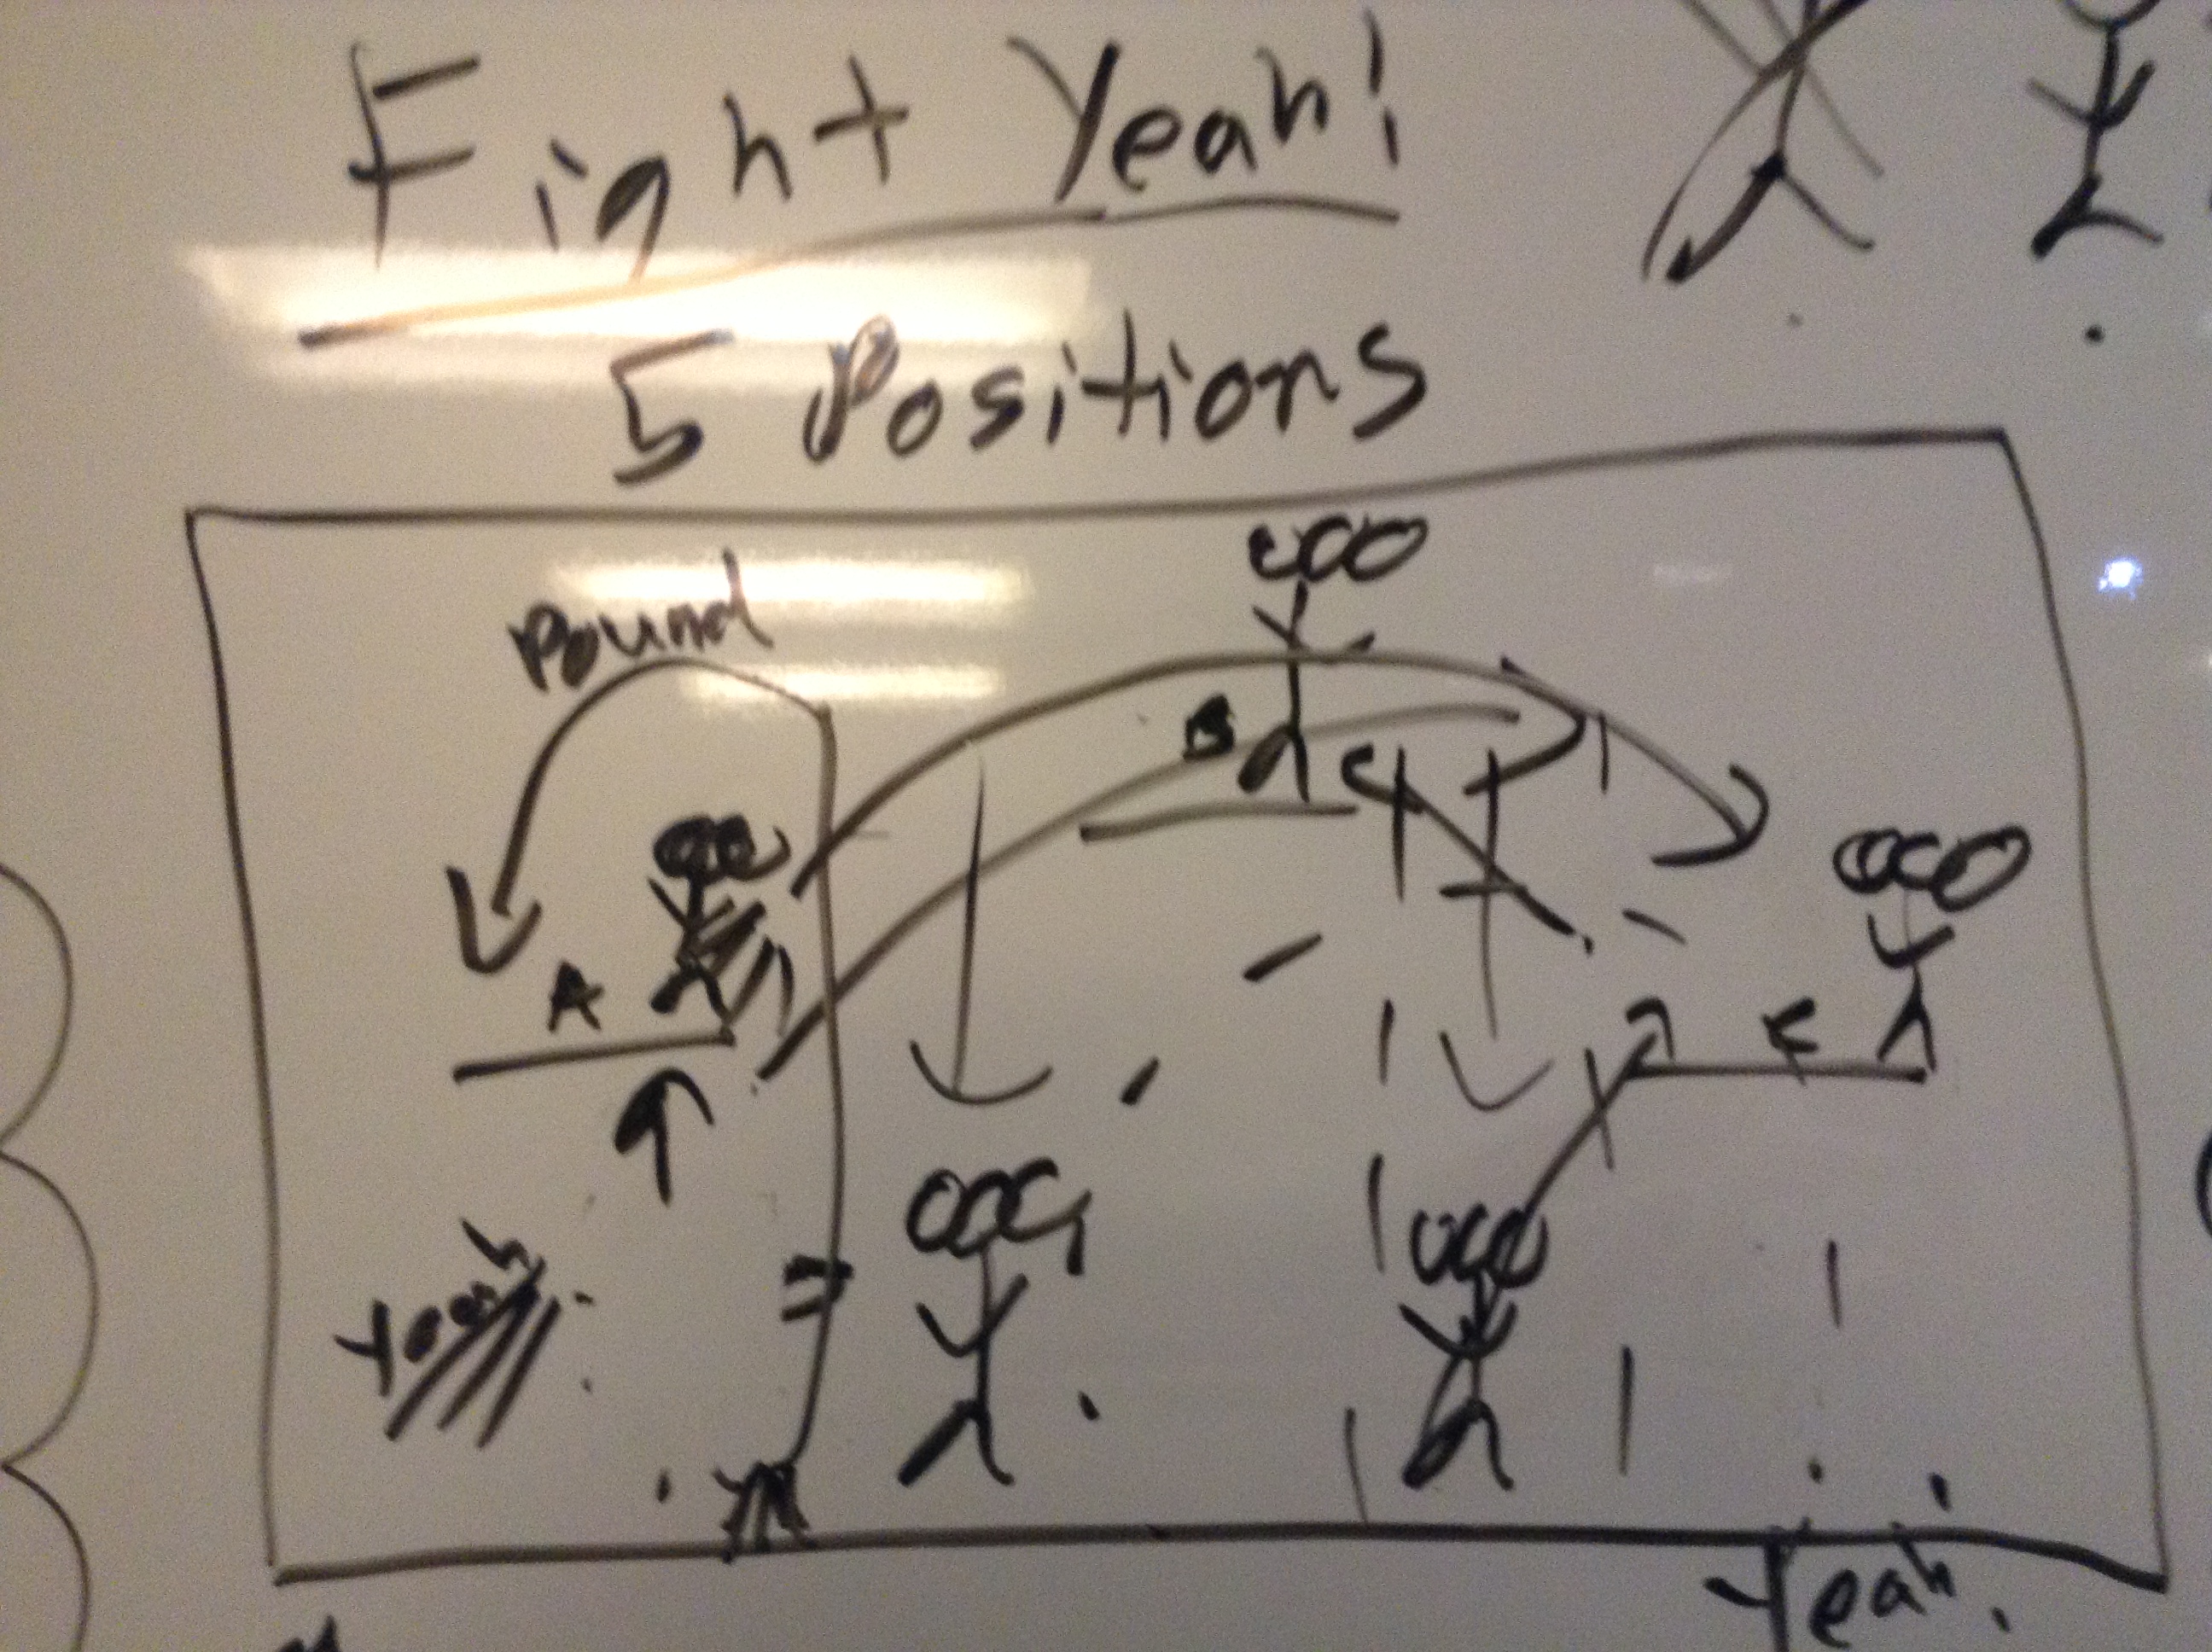 Fight Yeah!
5 Positions
Pound
B
A
Yeah
Yeah!